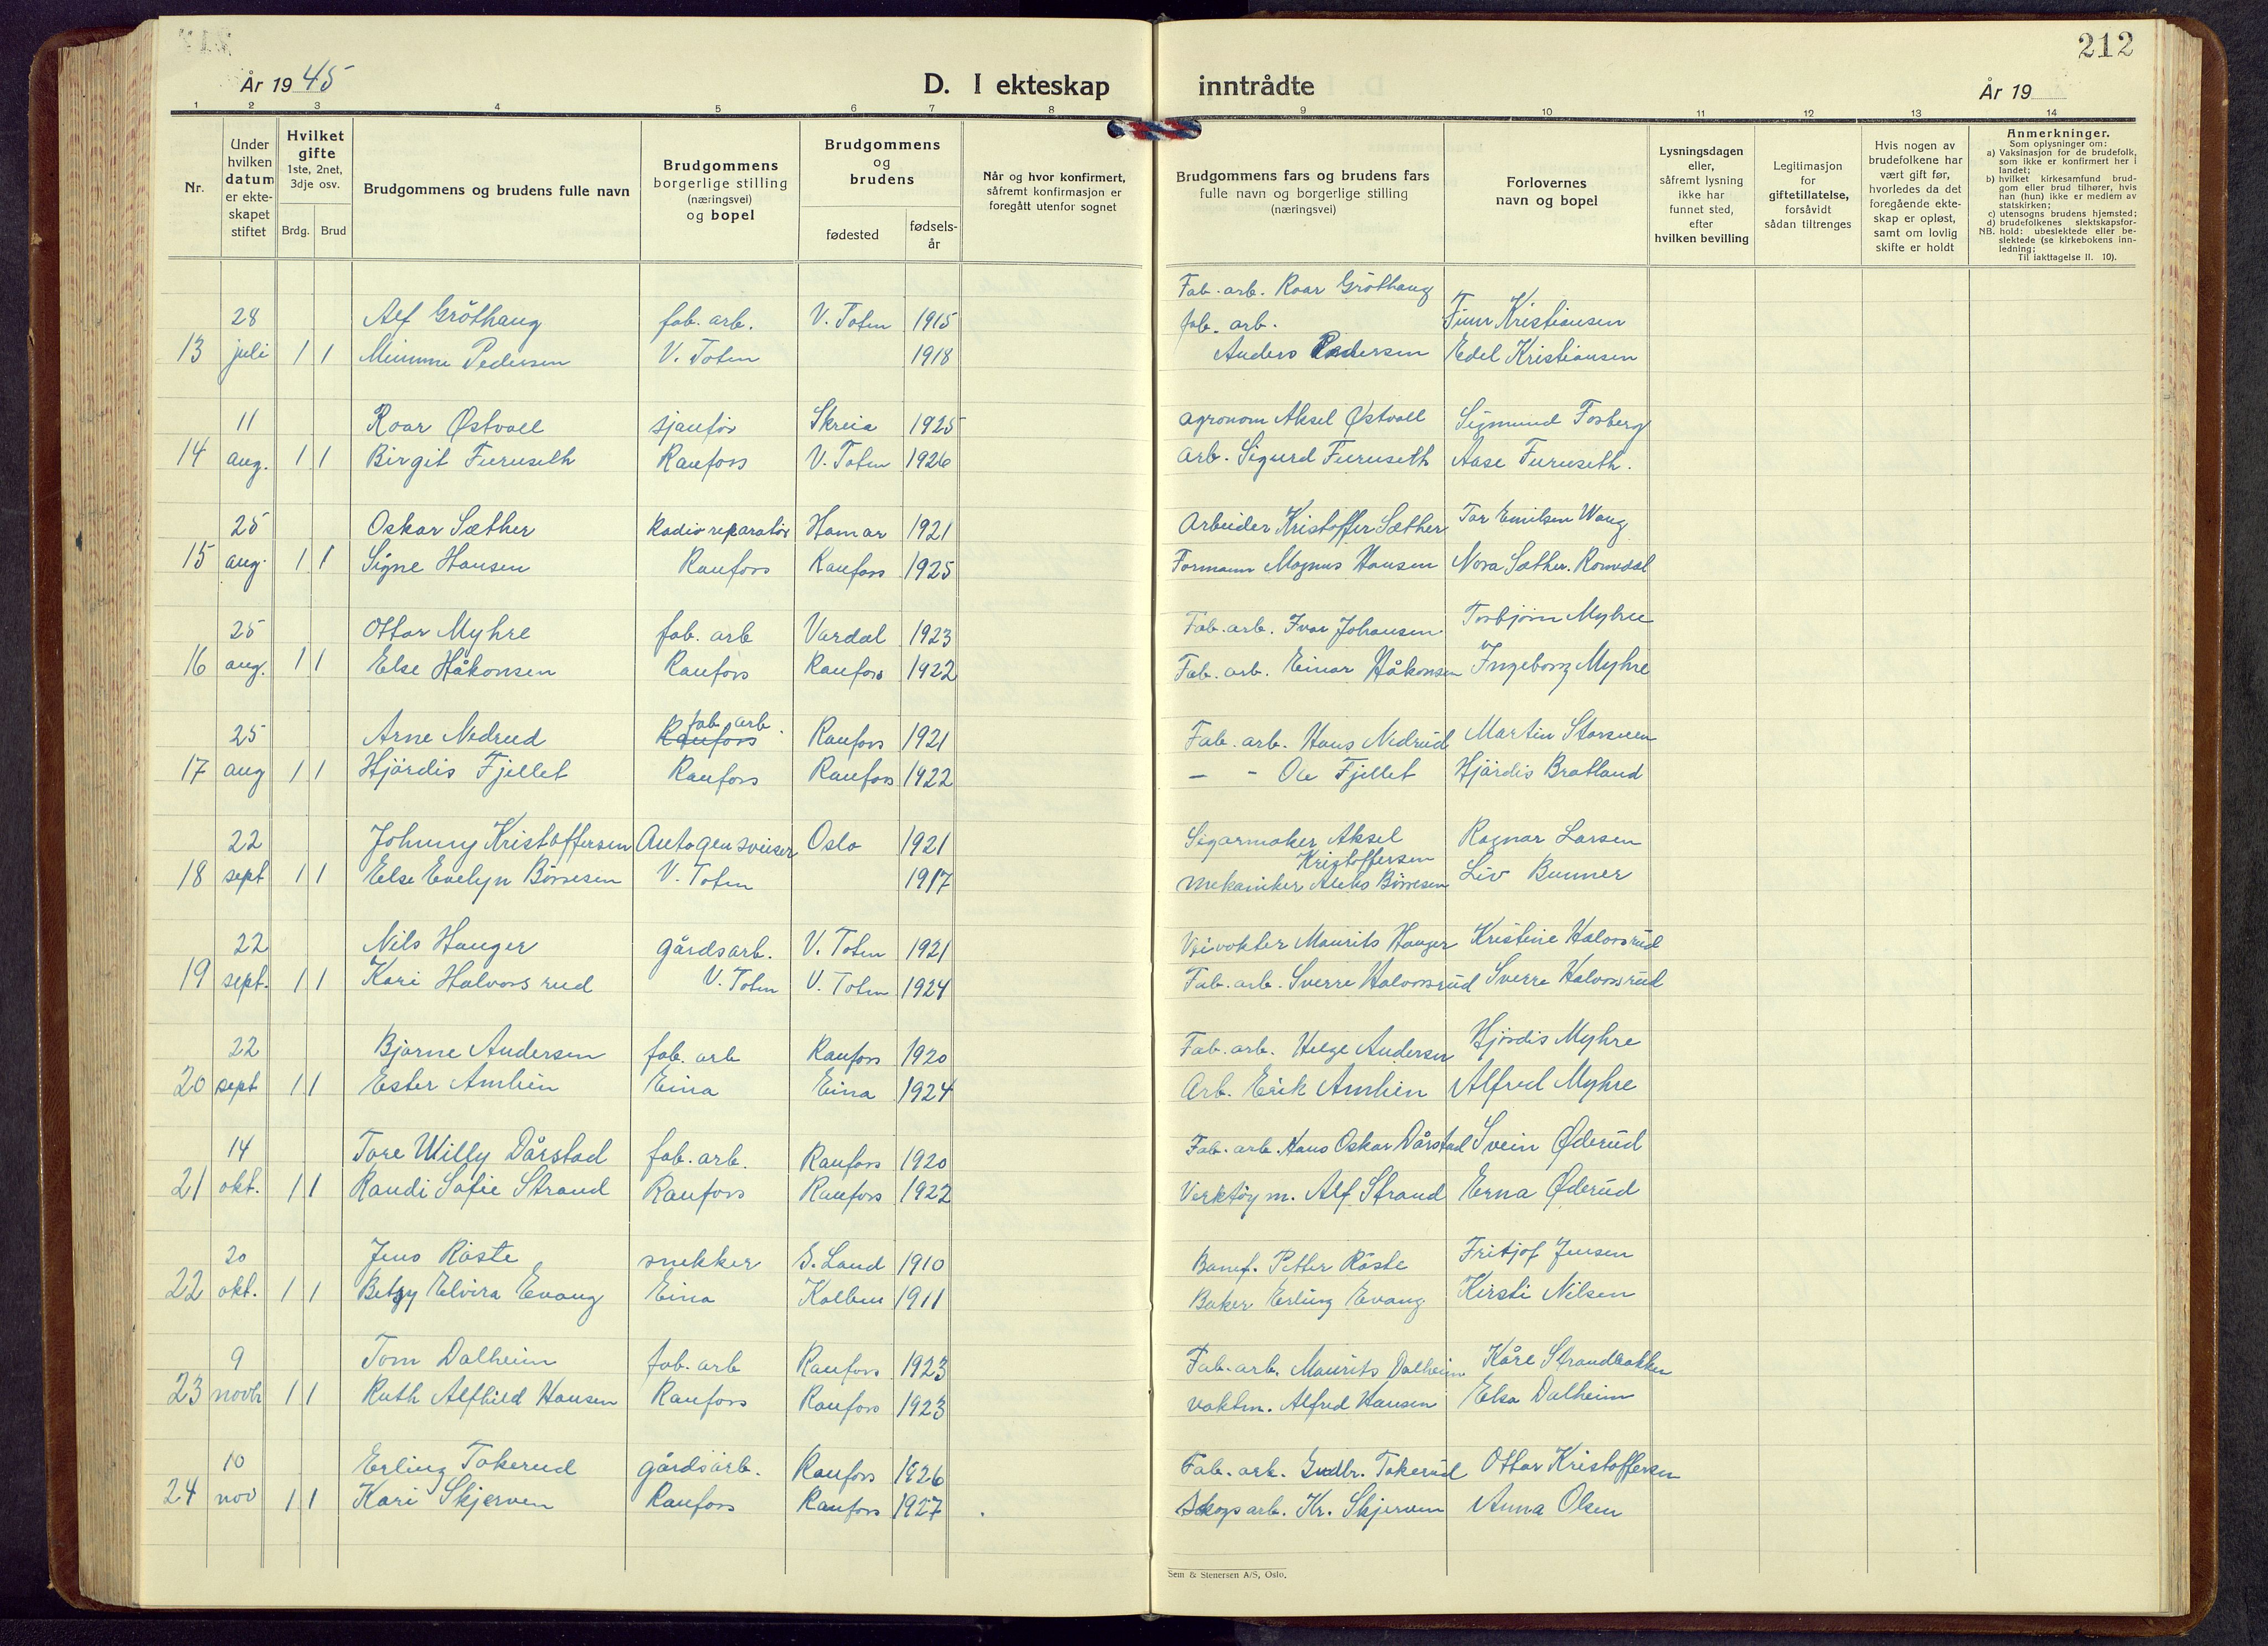 212
År 1945
D. I ekteskap inntrådte
År 19
1 2 3 4 5 6 7 8 9 10 11 12 13 14
Nr.
Under hvilken datum er ekte-skapet stiftet
Hvilket gifte 1ste, 2net, 3dje osv.
Brdg. Brud
Brudgommens og brudens fulle navn
Brudgommens borgerlige stilling (næringsvei) og bopel
Brudgommens og brudens
fødested
fødsels-år
Når og hvor konfirmert, såfremt konfirmasjon er foregått utenfor sognet
Brudgommens fars og brudens fars fulle navn og borgerlige stilling (næringsvei)
Forlovernes navn og bopel
Lysningsdagen eller, såfremt lysning ikke har funnet sted, efter hvilken bevilling
Legitimasjon for giftetillatelse, forsåvidt sådan tiltrenges
Hvis nogen av brudefolkene har vært gift før, hvorledes da det foregående ekte-skap er opløst, samt om lovlig skifte er holdt
Anmerkninger.
Som oplysninger om:
a) Vaksinasjon for de brudefolk, som ikke er konfirmert her i landet;
b) hvilket kirkesamfund brud-gom eller brud tilhører, hvis han (hun) ikke er medlem av statskirken;
c) utensogns brudens hjemsted;
d) brudefolkenes slektskapsfor-hold: ubeslektede eller be-slektede (se kirkebokens inn-ledning;
NB. Til iakttagelse II. 10).
Fab. arb. Roar Gröthaug
28 Alf Gröthaug fab. arb. V. Toten 1915 fab. arb. Finn Kristiansen
13 juli 1 1 Mimmi Pedersen V. Toten 1918 Anders Pedersen Edel Kristiansen
11 Roar Østvoll sjaufør Skreia 1925 agronom Aksel Østvoll Sigmund Fosberg
14 aug. 1 1 Birgit Furuseth Raufoss V. Toten 1926 arb. Sigurd Furuseth Aase Furuseth.
25 Oskar Sæther Radioreparatör Hamar 1921 Arbeider Kristoffer Sæther Tor Emilsen Wang
15 aug. 1 1 Signe Hansen Raufoss Raufoss 1925 Formann Magnus Hansen Nora Sæther. Romedal
25 Ottar Myhre fab. arb Vardal 1923 Fab. arb. Ivar Johansen Torbjørn Myhre
16 aug. 1 1 Else Håkonsen Raufoss Raufoss 1922 Fab. arb. Einar Håkonsen Ingeborg Myhre
fab. arb.
25 Arne Nedrud Raufoss Raufoss 1921 Fab. arb. Hans Nedrud Martin
17 aug 1 1 Hjördis Fjellet Raufoss Raufoss 1922 — - Ole Fjellet Hjördis Bratland
22 Johnny Kristoffersen Autogensveiser Oslo 1921 Sigarmaker Aksel Kristoffersen Ragnar Larsen
18 sept 1 1 Else Evelyn Börresen V. Toten 1917 mekaniker Börresen Liv Bunner
22 Nils Hauger gårdsarb. V. Toten 1921 Veivokter Maurits Hauger Kristine Halvorsrud
19 sept. 1 1 Kari Halvorsrud V. Toten V. Toten 1924 Fab. arb. Sverre Halvorsrud Sverre Halvorsrud
22 Bjarne Andersen fab. arb Raufoss 1920 Fab. arb. Helge Andersen Hjördis Myhre
20 sept 1 1 Ester Amlien Eina Eina 1924 Arb. Erik Amlien Alfred Myhre
14 Tore Willy Dårstad fab. arb. Raufoss 1920 Fab. arb. Hans Oskar Dårstad Svein Øderud
21 okt. 1 1 Randi Sofie Strand Raufoss Raufoss 1922 Verktöym. Alf Strand Erna Øderud
20 Jens Röste snekker S. Land 1910 Banef. Petter Röste Fritjof Jensen
22 okt. 1 1 Betzy Elvira Evang Eina Kolbu 1911 Baker Erling Evang Kirsti Nilsen
9 Tom Dalheim fab. arb Raufoss 1923 Fab. arb. Maurits Dalheim Kåre Strandbakken
23 novbr 1 1 Ruth Alfhild Hansen Raufoss Raufoss 1923 vaktm. Alfred Hansen Elsa Dalheim
10 Erling Tokerud gårdsarb. Raufoss 1926 Fab. arb. Gudbr. Tokerud Ottar Kristoffersen
24 nov 1 1 Kari Skjerven Raufoss Raufoss 1927 Skogsarb. Kr. Skjerven Anna Olsen
Sem & Stenersen A/S, Oslo.